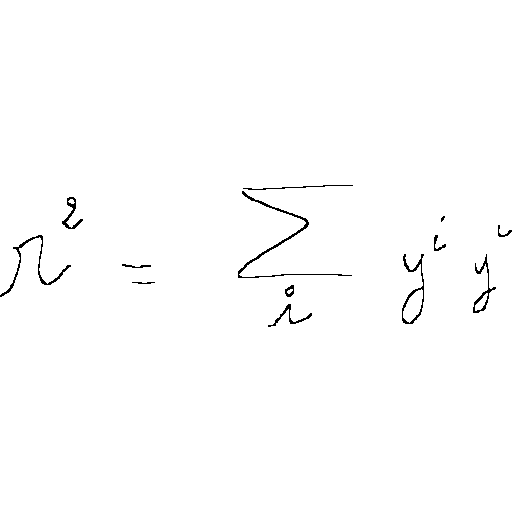 r^2 = \sum_i y^i y^i